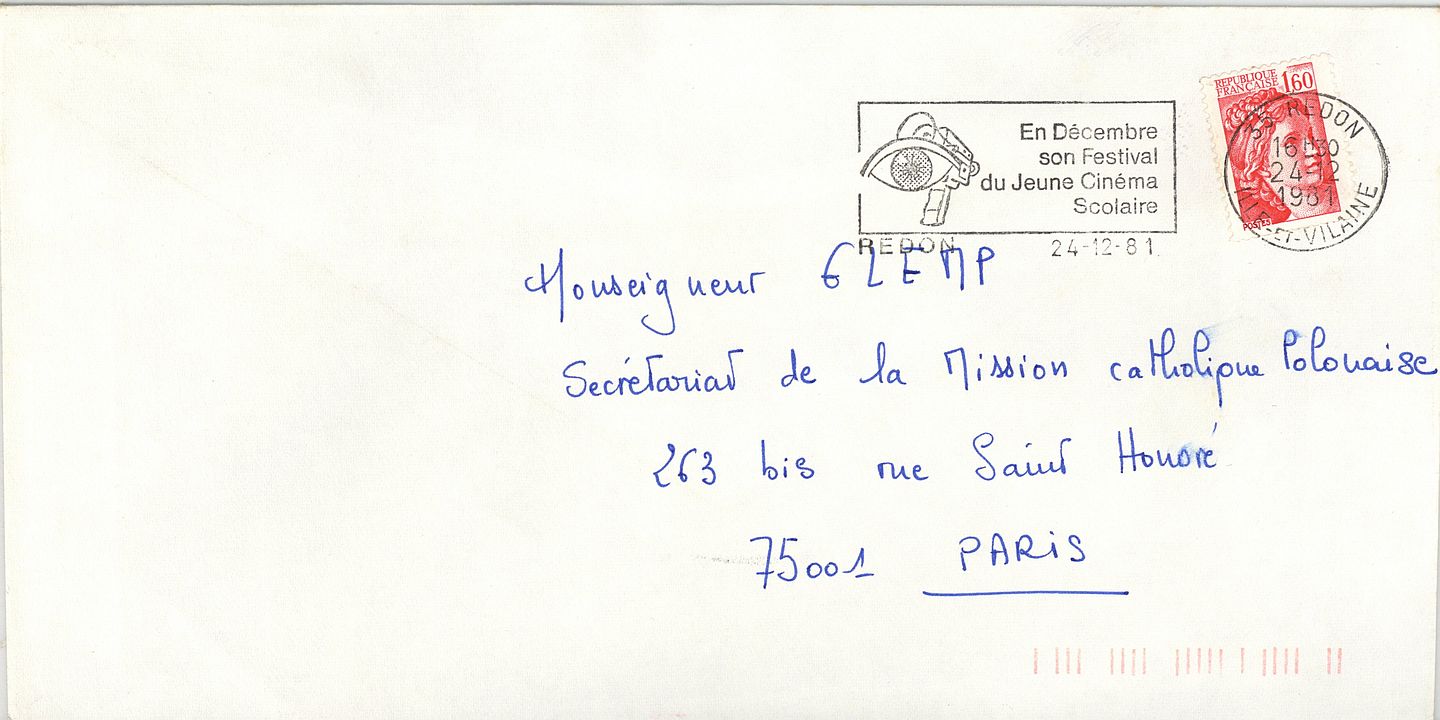 RÉPUBLIQUE
FRANÇAISE 1,60
POSTES
35 REDON
16H30
24-12
1981
ILLE-ET-VILAINE
En Décembre
son Festival
du Jeune Cinéma
Scolaire
REDON 24-12-81
Monseigneur GLEMP
Secrétariat de la Mission catholique Polonaise
263 bis rue Saint Honoré
75001 PARiS